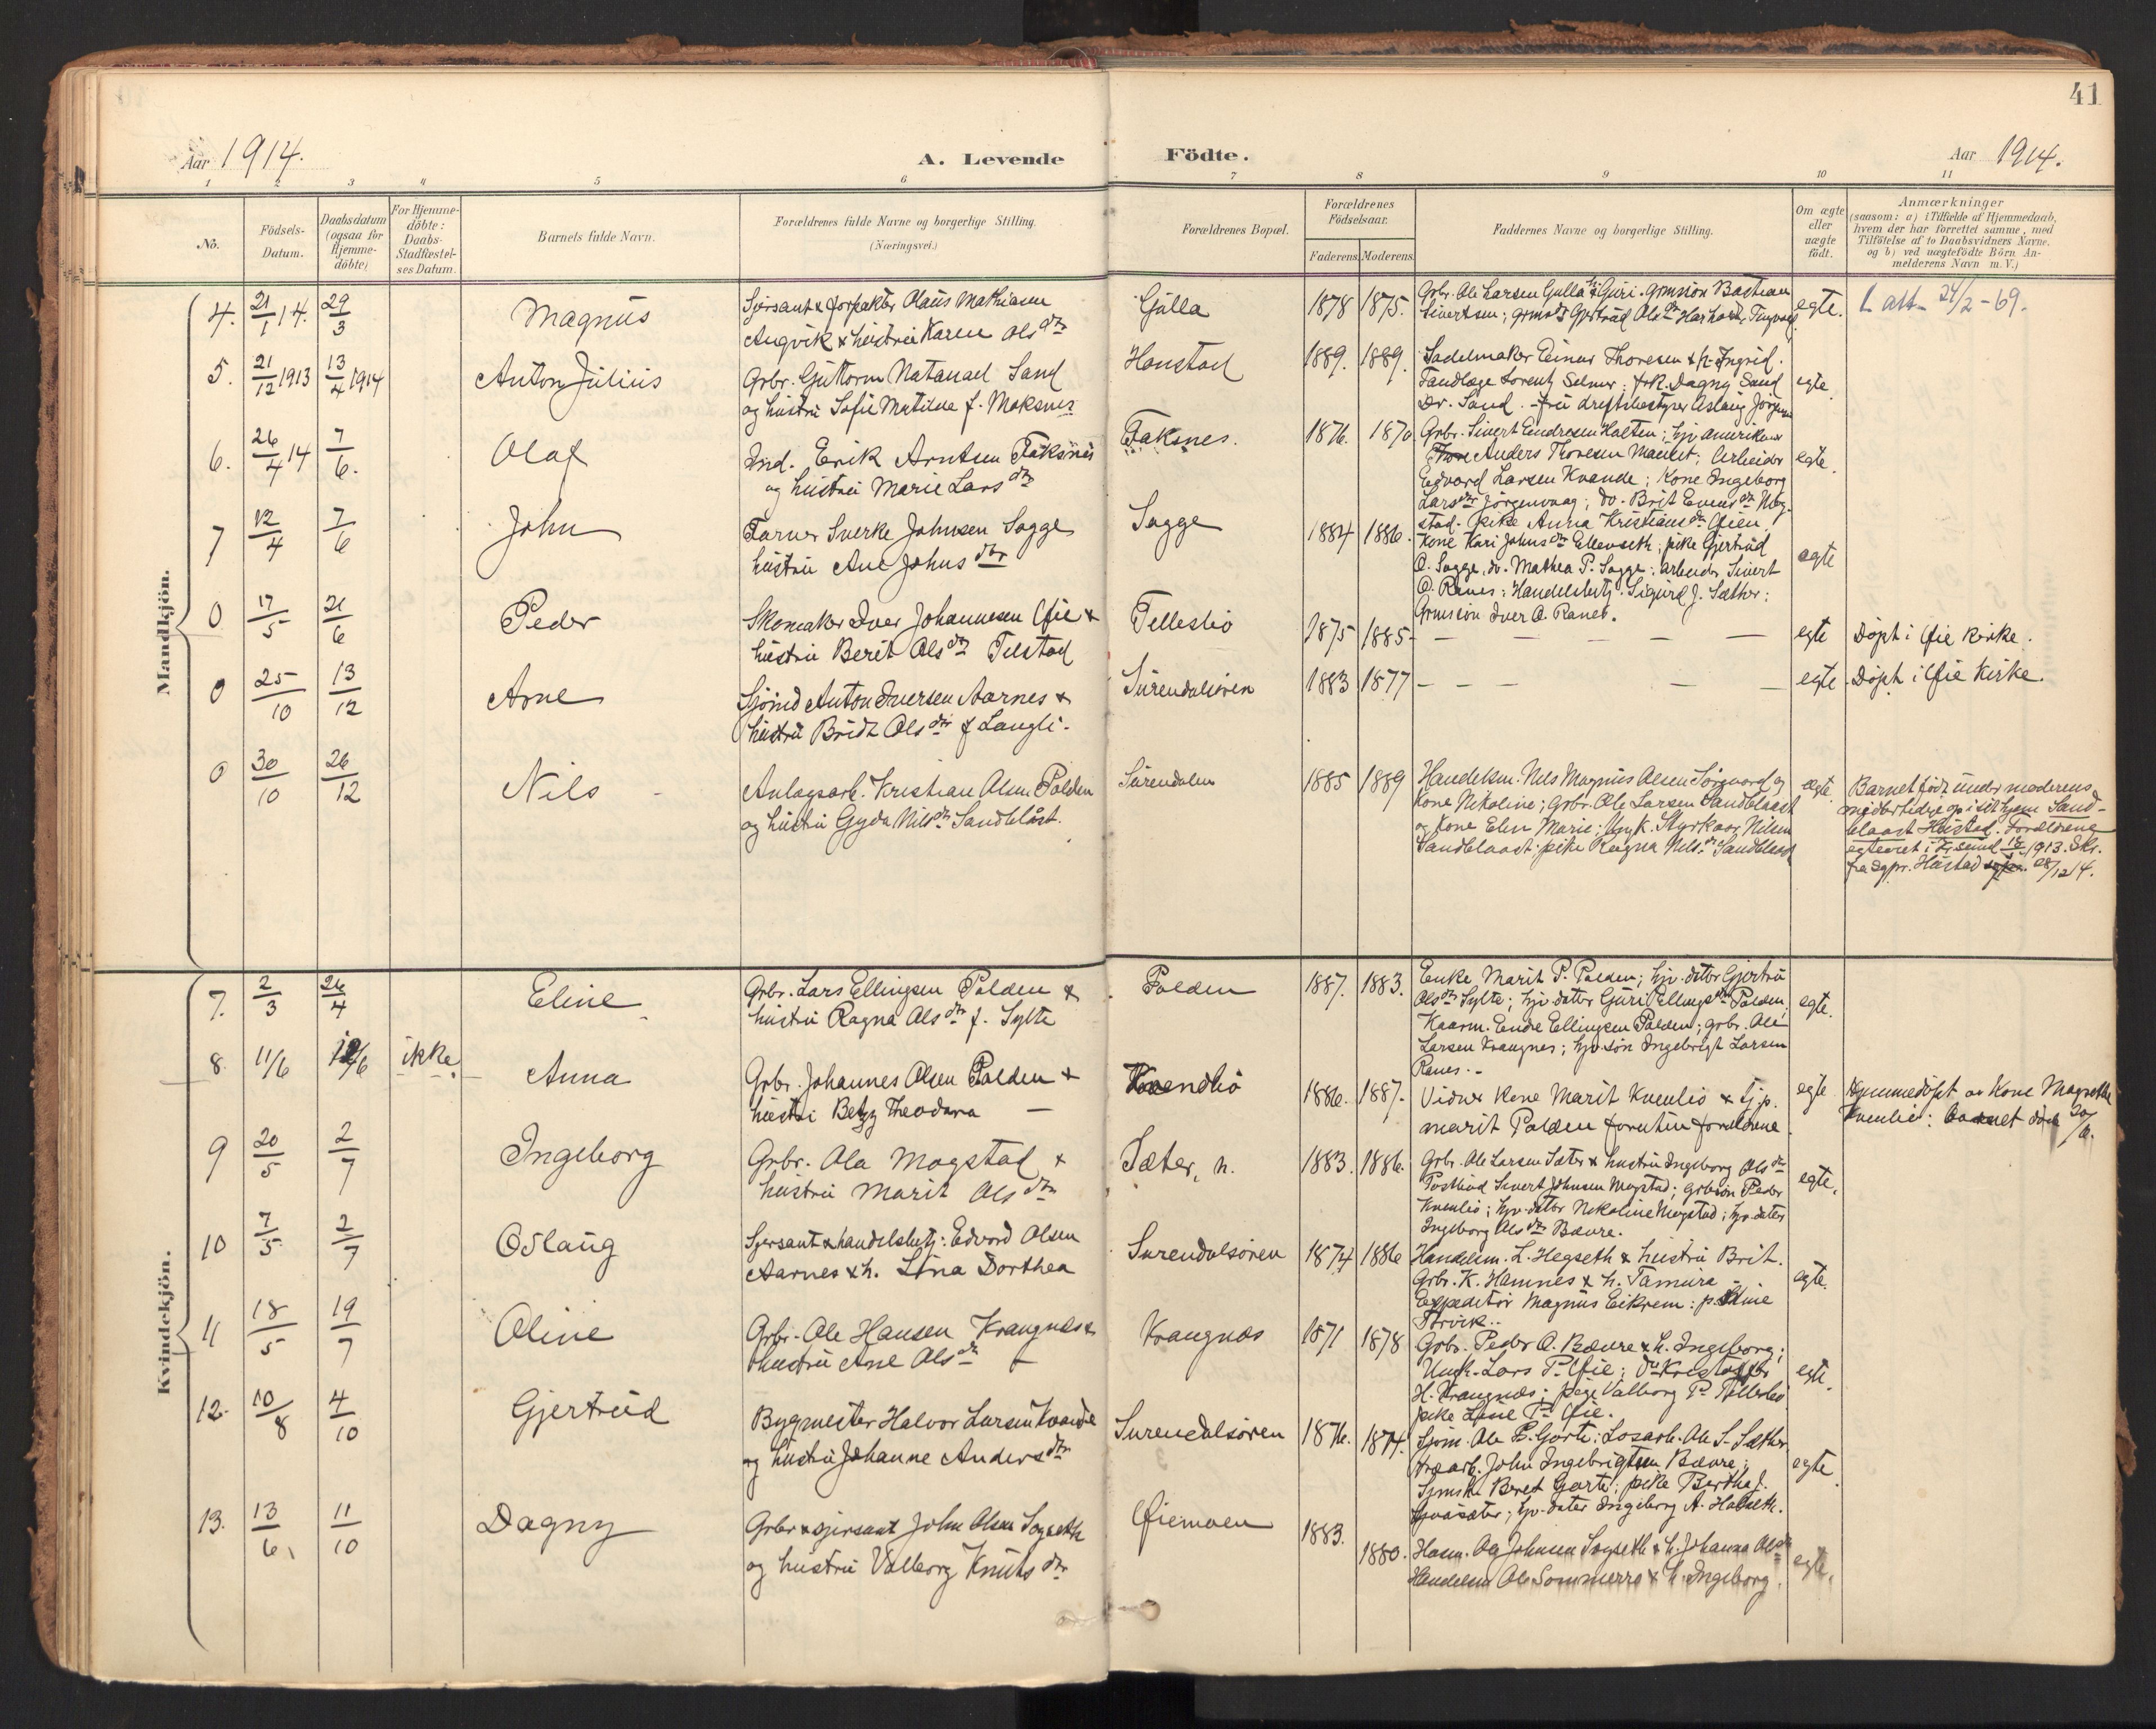 41
Aar 1914.
A. Levende Födte.
Aar 1914.
1 2 3 4 5 6 7 8 9 10 11
No.
Födsels-
Datum.
Daabsdatum
(ogsaa for
Hjemme-
döbte)
For Hjemme-
döbte:
Daabs-
Stadfæstel-
ses Datum.
Barnets fulde Navn.
Forældrenes fulde Navne og borgerlige Stilling.
(Næringsvei.)
Forældrenes Bopæl.
Forældrenes
Födselsaar.
Faderens. Moderens.
Faddernes Navne og borgerlige Stilling.
Om ægte
eller
uægte
födt.
Anmærkninger
(saasom: a) i Tilfælde af Hjemmedaab,
hvem der har forrettet samme, med
Tilföielse af to Daabsvidners Navne.
og b) ved uægtefödte Börn An-
melderens Navn m. V.)
Mandkjön.
4. 21/1 14. 29/3 Magnus
Sersant & forpakter Olaus Mathiasen
Angvik & hustru Karen Olsdtr
Gjulla 1878 1875.
Grbr. Ole Larsen Gulla & Guri. Grmsøn Bastian
Sivertsen;
egte.
1. att. 24/2-69.
5. 21/12 1913 13/4 1914 Anton Julius
Grbr. Guttorm Natanael Sand
og hustru Sofie Matilde f. Moksnes
Honstad 1889. 1889.
Sadelmaker Einar Thoresen & h. Ingrid.
Tandlæge Lorentz Selmer; frk. Dagny Sand
Dr. Sand. - fru driftsbestyrer Aslaug
egte.
6. 26/4 14 7/6. Olaf
Ind. Erik Arntsen Faksnes
og hustru Marie Larsdtr
Faksnes. 1876. 1870
Grbr. Sivert Endresen Holten; hjv. amerikaner
Anders Thoresen; Arbeider
Edvard Larsen Kvande; Kone Ingeborg
Larsdtr Jørgenvaag; do. Brit
stad. pike Anna Kristiansdtr Øien.
egte.
7 12/4 7/6 John
Farver Sverke Johnsen Sogge
hustru Ane Johnsdtr
Sogge 1884 1886.
Kone Kari Johnsdtr Ellevseth; pike Gjertrud
O. Sogge, do. Mathea P. Sogge; arbeider Sivert
O. Ranes; Handelsbetj. Sigurd J. Sæther;
Grmsøn Iver O. Ranes.
egte
0 17/5 21/6 Peder
Skomaker Iver Johannesen Øie &
hustru Berit Olsdtr Telstad
Tellesbø 1875 1885 - — — — — —
egte Døpt i Øie Kirke.
0 25/10 13/12 Arne
Sjømd Anton Iversen Aarnes &
hustru Bridt Olsdtr f Langli.
Surendalsøren 1883 1877 - — — — —
egte Døpt i Øie Kirke.
0 30/10 26/12 Nils
Anlagsarb. Kristian Olsen Polden
og hustru Gyda Nilsdtr Sandblåst.
Surendalen 1885 1889
Handelsm. Nils Magnus Olsen Sørgaard og
Kone Nikoline; Grbr. Ole Larsen Sandblaast
og Kone Elen Marie; Ungk. Styrkaar Nilsen
Sandblaast; pike Ragna Nilsdtr Sandblaast
egte.
Barnet født under moderens
midlertidige op i sit hjem Sand-
blaast Hustad. Forældrene
egteviet i Kr.sund 1913. Skr.
fra Sgpr. Hustad 28/12 14.
Kvindekjön.
7. 2/3 26/4 Eline
Grbr. Lars Ellingsen Polden &
hustru Ragna Olsdtr f. Sylte
Polden 1887. 1883.
Enke Marit P. Polden; hjv. datter Gjertru
Olsdtr Sylte; hjv. datter Guri Ellingsdtr Polden;
Kaarm. Endre Ellingsen Polden; grbr. Ole
Larsen Krangnes; hjv. søn Ingebrigt Larsen
Ranes. -
egte.
8. 11/6 12/6 ikke Anna
Grbr. Johannes Olsen Polden &
hustru Betzy Theodora —
Kvendbø 1886. 1887.
Vidner Kone Marit Kvenbø & Gj. p.
Marit Polden foruten forældrene.
egte
Hjemmedøpt av Kone Magnhild
Kvenbø: barnet døde 20/6.
9 20/5 2/7 Ingeborg
Grbr. Ola Mogstad &
hustru Marit Olsdtr
Sæter, n. 1883. 1886.
Grbr. Ole Larsen Sæter & hustru Ingeborg Olsdtr
Postbud Sivert Johnsen Mogstad; grbsøn Peder
Kvenbø; hjv. datter Nikoline Mogstad; hjv. datter
Ingeborg Olsdtr Bævre.
egte.
10 7/5 2/7 Oslaug
Sersant & handelsbetj: Edvard Olsen
Aarnes & h. Lina Dorthea
Surendalsøren 1874 1886
Handelsm. L. Hegseth & hustru Brit.
Grbr. K. Hamnes & h. Tamara
Expeditør Magnus Eikrem: p. Eline
egte.
11 18/5 19/7 Oline
Grbr. Ole Hansen Krangnes &
hustru Ane Olsdtr -
Krangnes 1871 1878
Grbr. Peder O. Bævre & h. Ingeborg;
Ungk. Lars P. Øie; do Kristoffer
H. Krangnes; pige Valborg P. Tellesbø
pike Lina P. Øie.
egte.
12. 10/8 4/10 Gjertrud
Bygmester Halvor Larsen Kvande
og hustru Johanne Andersdtr
Surendalsøren 1876. 1874.
Sjøm. Ole B. Garte; Losarb. Ole S. Sæther
Træarb. John Ingebrigtsen Bævre;
Sjmsk. Beret Garte; pike Bertha J.
hjv. datter Ingeborg A. Halseth.
egte.
13. 13/6. 11/10 Dagny
Grbr & sersant John Olsen Sogseth
og hustru Valborg Knutsdtr
Øiemoen 1883. 1880.
Husm. Ole Johnsen Sogseth & h. Johanna Olsdtr
Handelsm Ole Sommerro & h. Ingeborg.
egte.